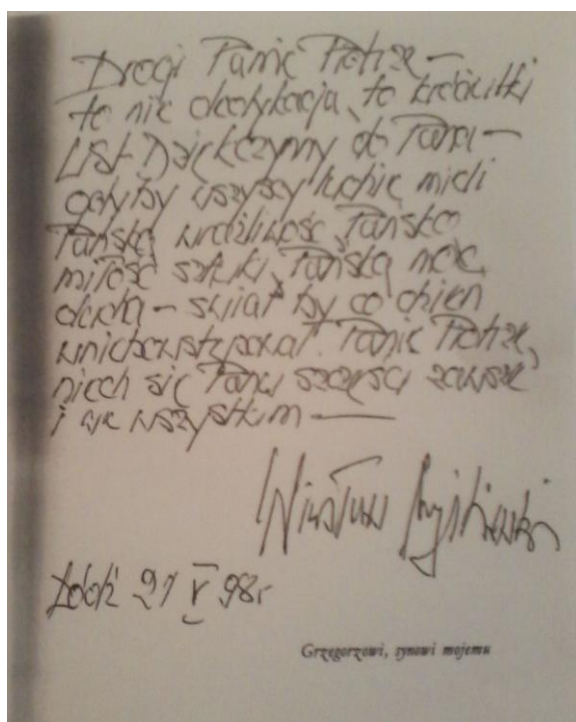 Drogi Panie Piotrze —
to nie dedykacja, to króciutki
List Dziękczynny do Pana —
gdyby wszyscy ludzie mieli
Pańską wrażliwość, Pańską
miłość sztuki, Pańską moc
ducha — świat by co dzień
wniebowstępował. Panie Piotrze,
niech się Panu szczęści zawsze
i we wszystkim —
Wiesław
Łódź 21 V 98r
Grzegorzowi, synowi mojemu